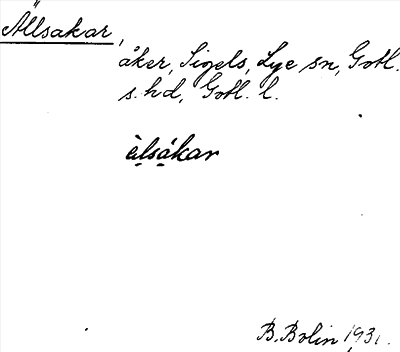 Ällsakar,
åker, Sigels, Lye sn, Gotl.
s. hd, Gotl. l.
èlsákar
B. Bolin 1931.